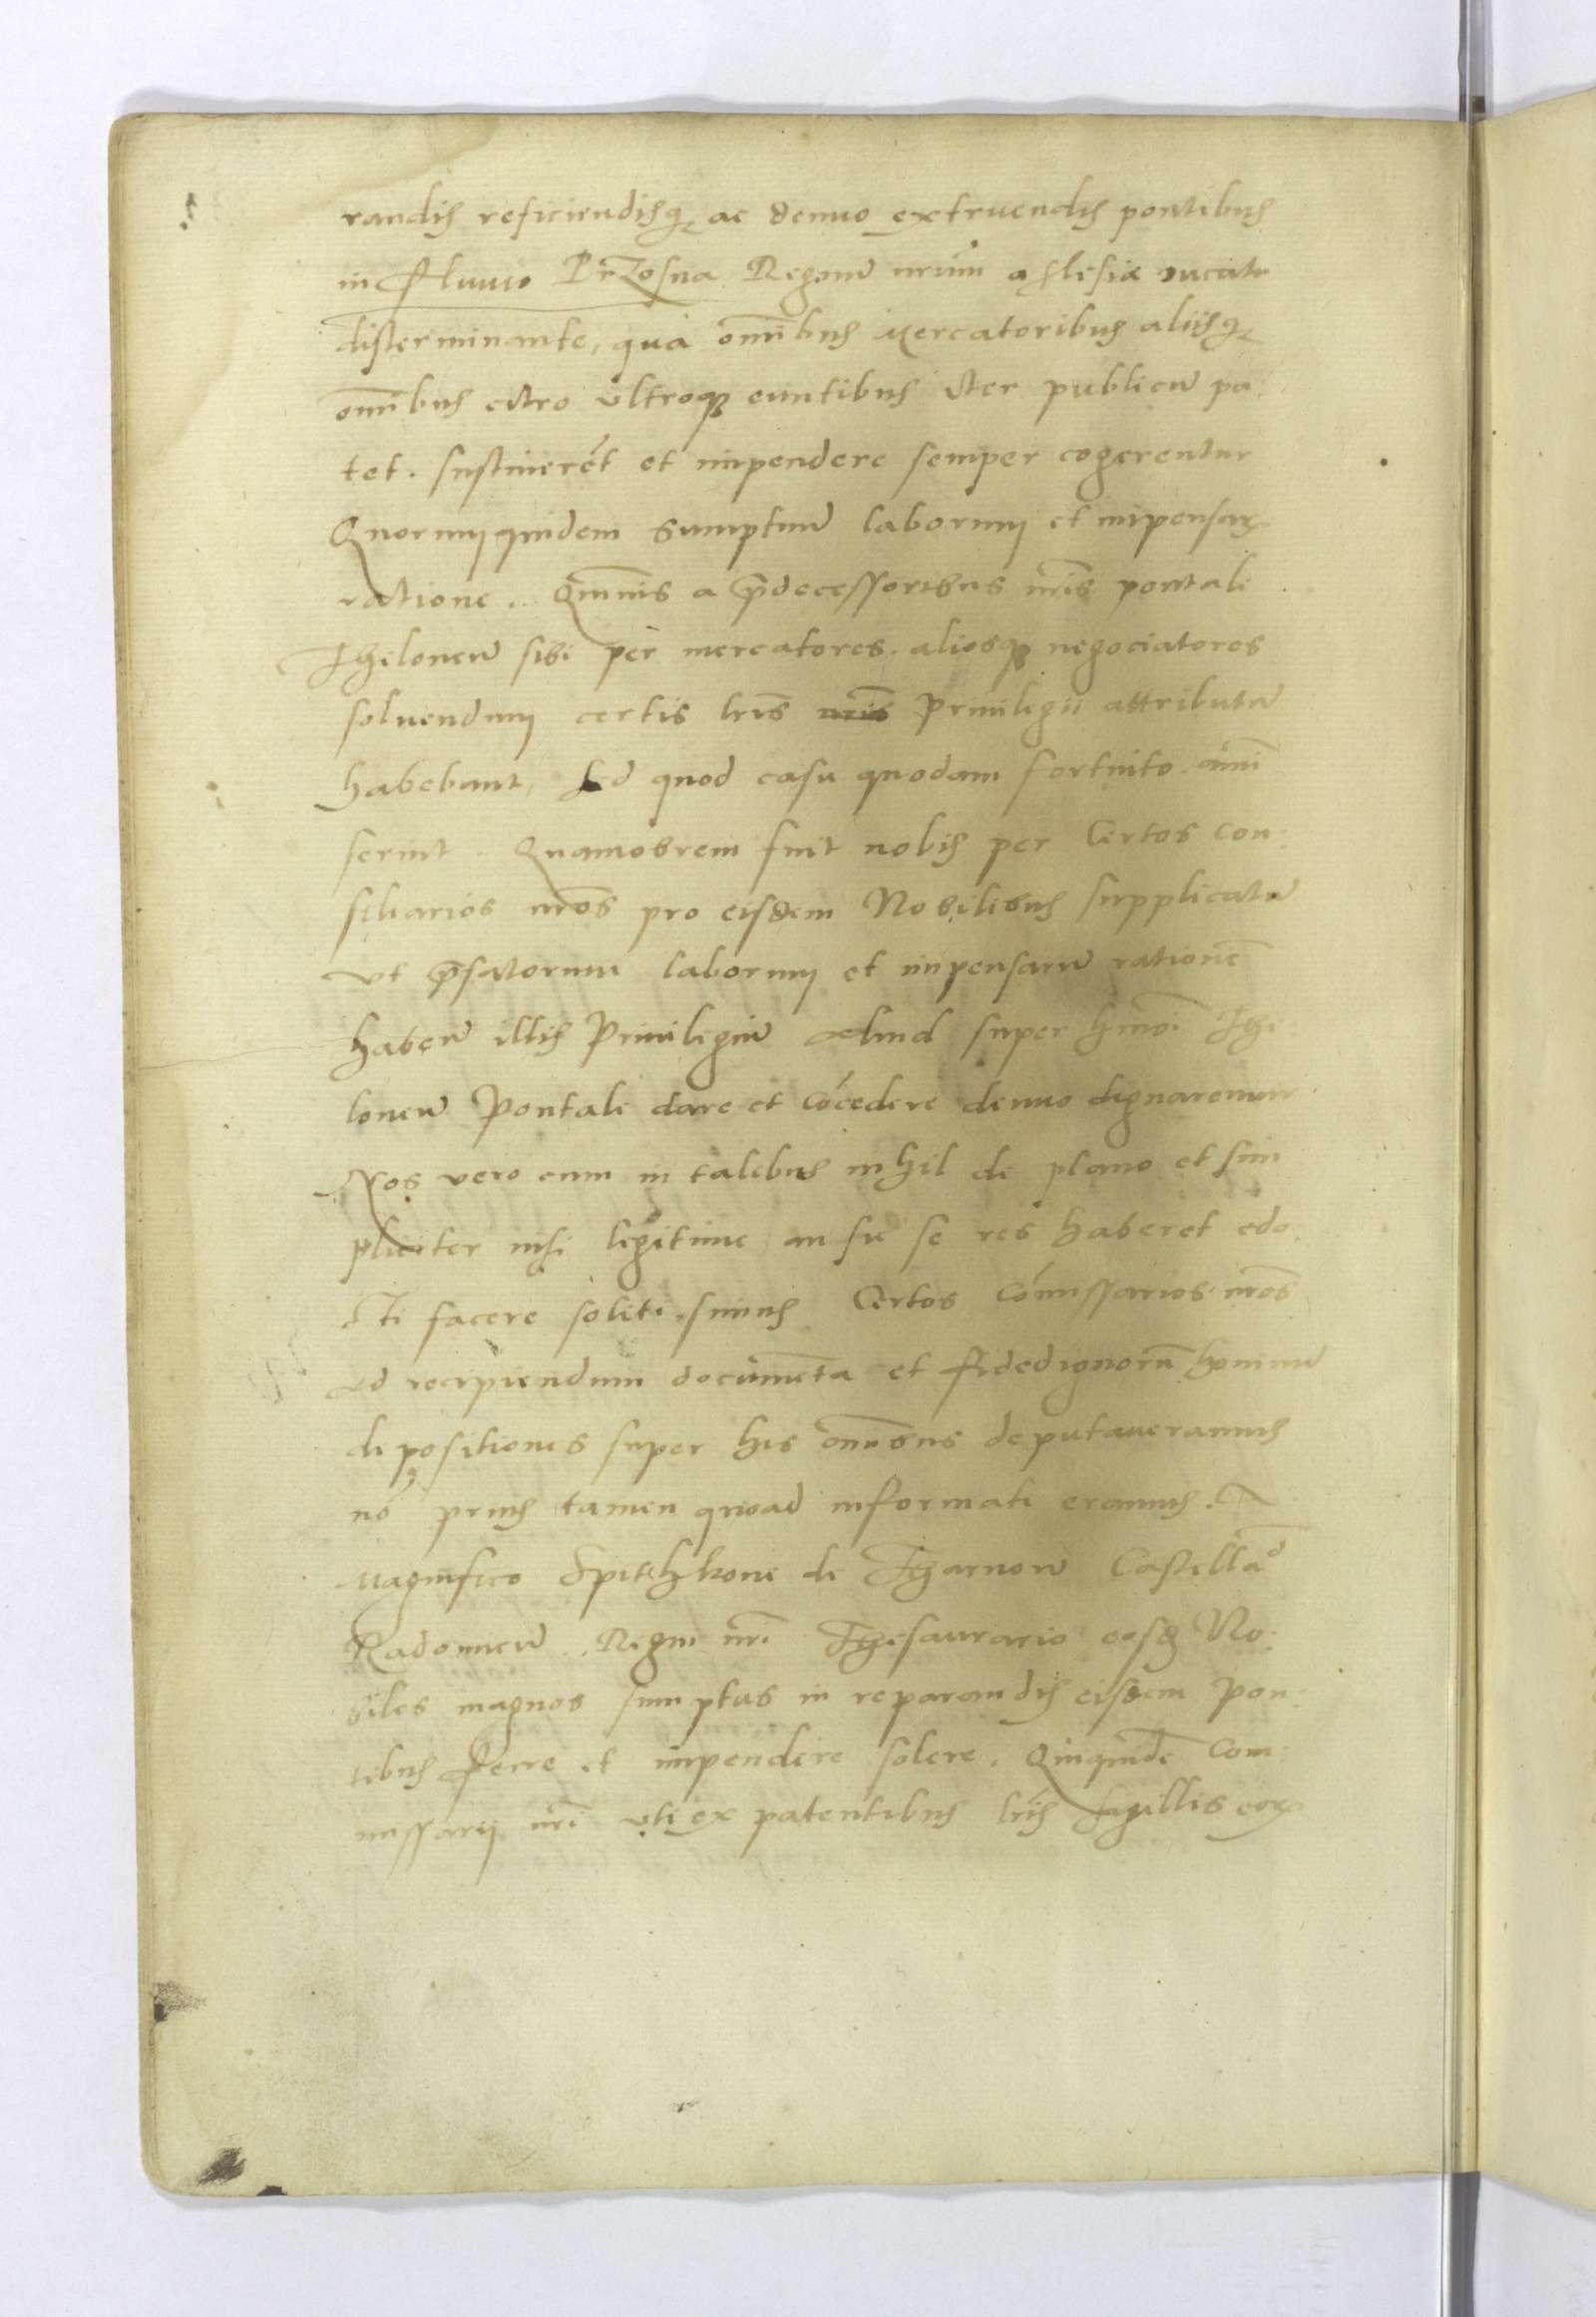 randis reficiendisq₃ ac denuo extruendis pontibus
in fluuio Przosna Regnū nr̄um a slesiæ ducatu
disterminante, qua om̄ibus Mercatoribus aliisq₃
om̄ibus citro vltroq₃ euntibus iter publicū pa:
tet. sustinerēt et impendere semper cogerentur
Quorum quidem sumptuū laborum et impensaꝝ
ratione. Quāuis a p̄decessoribus nr̄is pontale
Theloneū sibi per mercatores aliosq₃ negociatores
soluendum certis lr̄is nr̄is Priuilegii attributū
habebant, Id quod casu quodam fortuito ami
serint. Quamobrem fuit nobis per Certos con:
siliarios nr̄os pro eisdem Nobilibus supplicatū
vt p̄fatorum laborum et impensarū rationē
habeñ illis Priuilegiū aliud super hm̄oi The:
loneū Pontale dare et cōcedere denuo dignaremur
Nos vero cum in talibus nihil de plano et sim
pliciter nisi legitime an sic se res haberet edo:
cti facere soliti sumus Certos Cōmissarios nr̄os
ad recipiendum documēta et fidedignorū hominū
depositiones super his om̄ibus deputaueramus
nō prius tamen quoad informati eramus. A
Magnifico Spithkone de Tharnow Castellāo
Radomieñ. Regni nr̄i Thesaurario eosd̄ No:
biles magnos sumptus in reparandis eisdem Pon:
tibus ferre et impendere solere. Quiquidē Com:
missarij nr̄i vti ex patentibus lr̄is sigillis eoꝝ